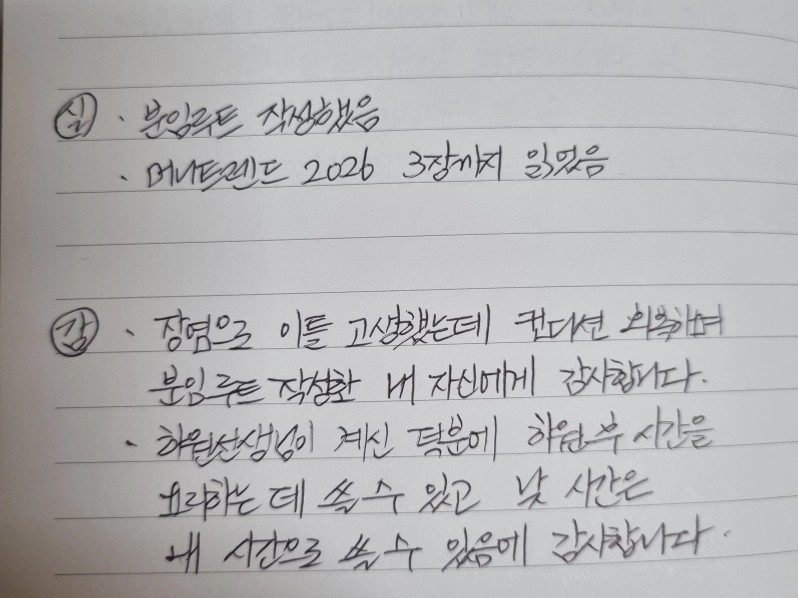 실 · 분임루트 작성했음
· 머니트렌드 2026 3장까지 읽었음
감 · 장염으로 이틀 고생했는데 컨디션 회복하며
분임루트 작성한 내 자신에게 감사합니다.
· 하원선생님이 계신 덕분에 하원 후 시간을
요리하는 데 쓸 수 있고 낮 시간은
내 시간으로 쓸 수 있음에 감사합니다.